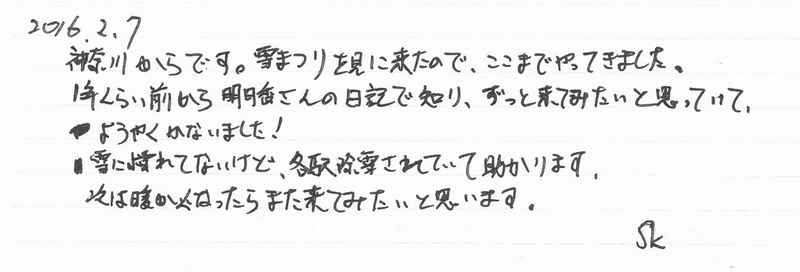 2016.2.7
神奈川からです。雪まつりを見に来たので、ここまでやってきました。
1年くらい前から明日香さんの日記で知り、ずっと来てみたいと思っていて、
ようやくかないました!
雪に慣れてないけど、各駅除雪されていて助かります。
次は暖かくなったらまた来てみたいと思います。
Sk